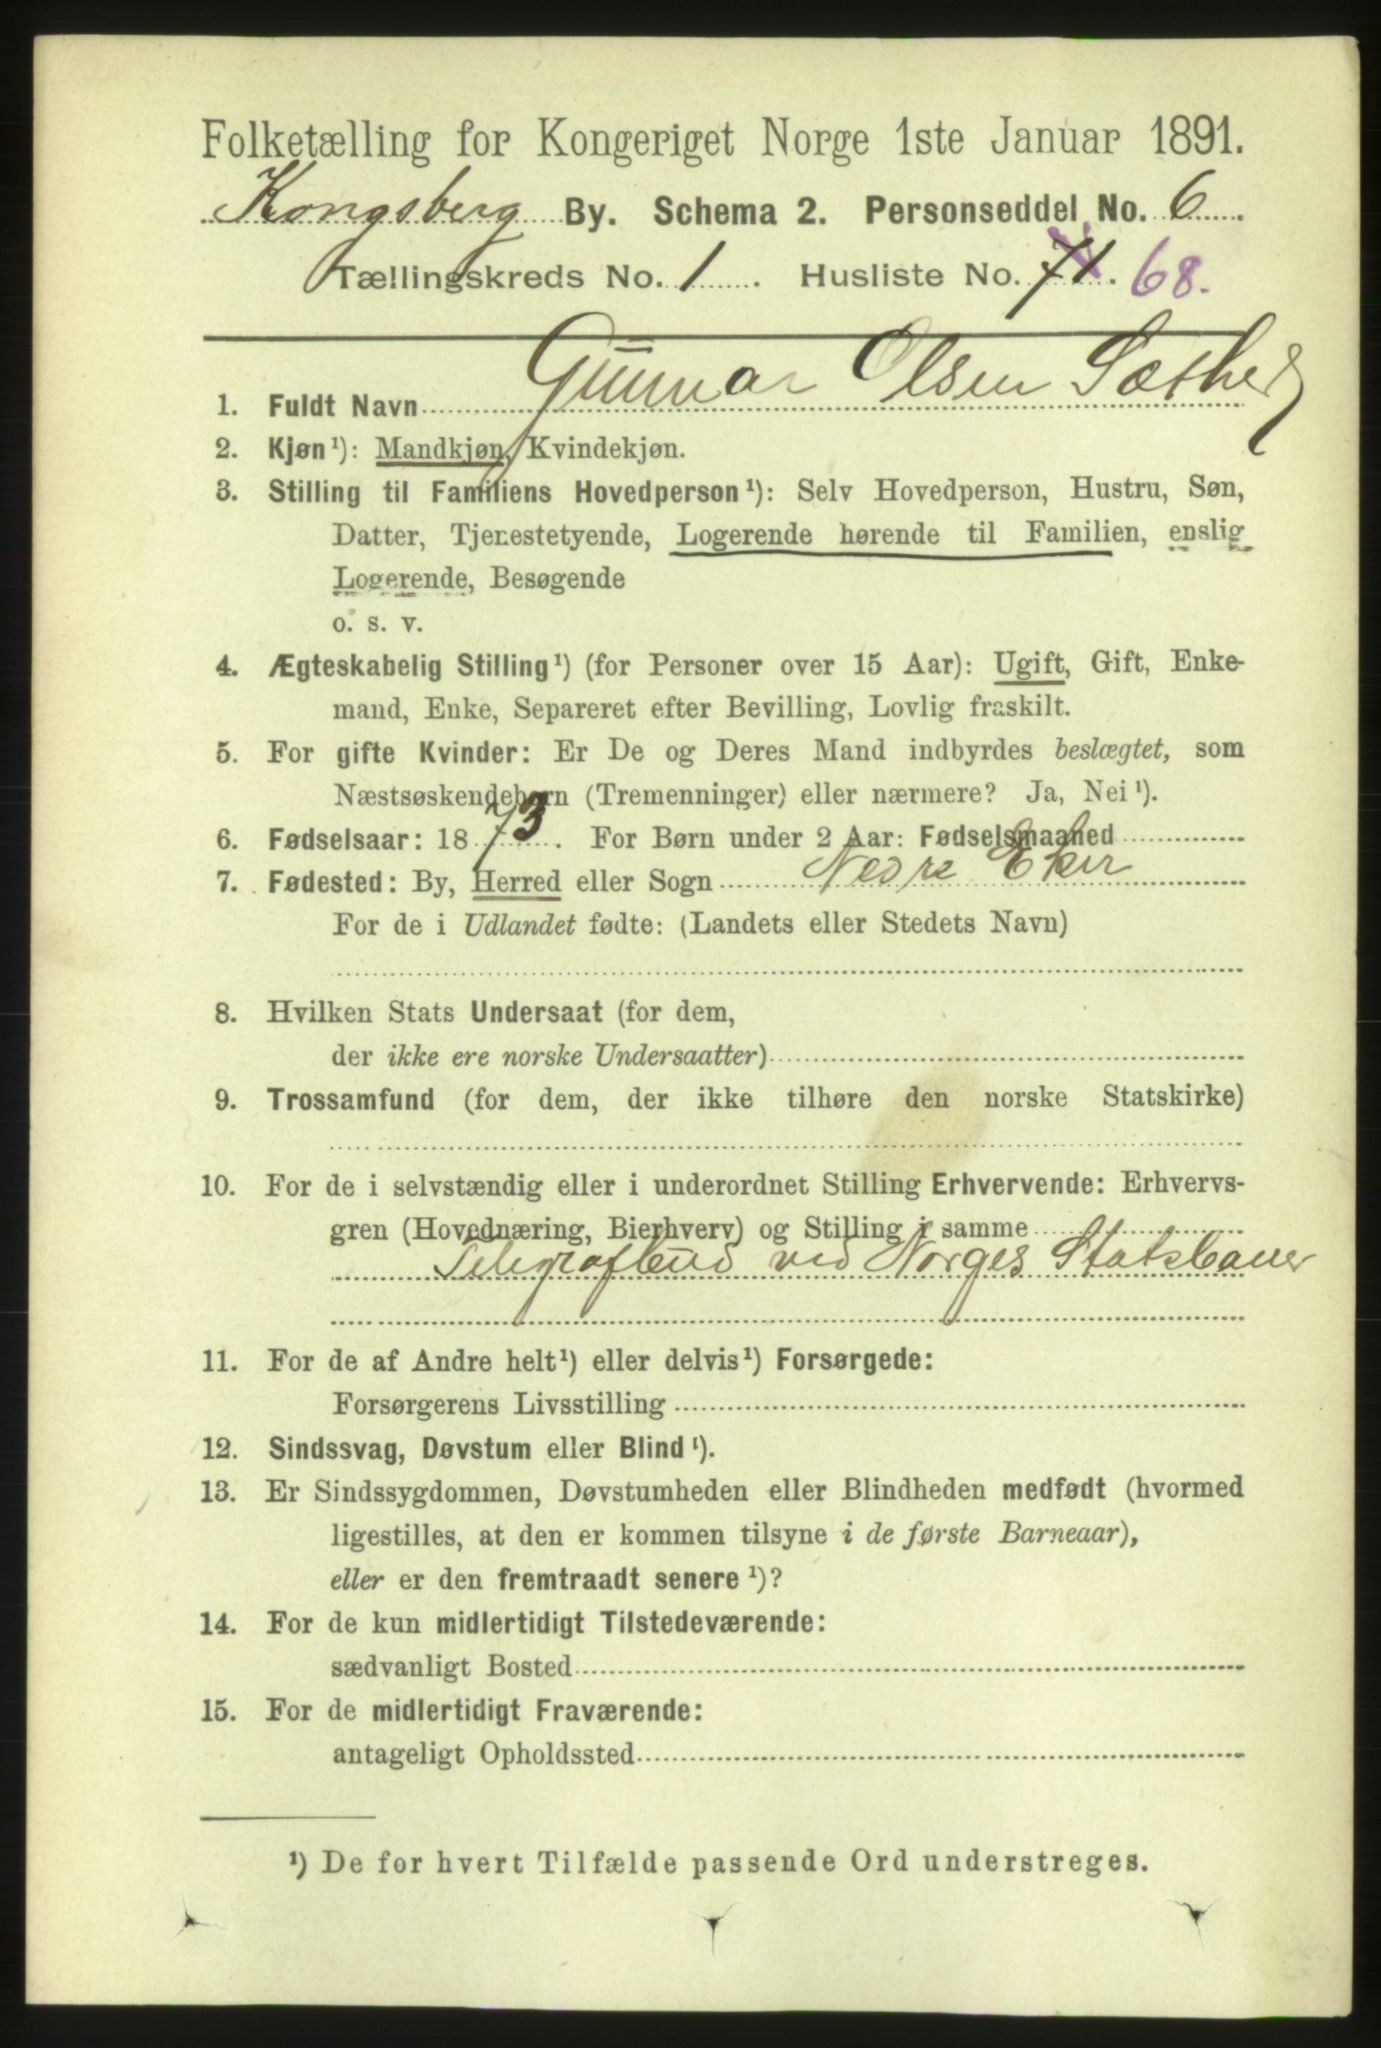 Folketælling for Kongeriget Norge 1ste Januar 1891.
Kongsberg By. Schema 2. Personseddel No. 6
Tællingskreds No. 1. Husliste No. 71. 68.
1. Fuldt Navn Gunnar Olsen Sæther
2. Kjøn¹): Mandkjøn, Kvindekjøn.
3. Stilling til Familiens Hovedperson¹): Selv Hovedperson, Hustru, Søn,
Datter, Tjenestetyende, Logerende hørende til Familien, enslig
Logerende, Besøgende
o. s. v.
4. Ægteskabelig Stilling¹) (for Personer over 15 Aar): Ugift, Gift, Enke-
mand, Enke, Separeret efter Bevilling, Lovlig fraskilt.
5. For gifte Kvinder: Er De og Deres Mand indbyrdes beslægtet, som
Næstsøskendebørn (Tremenninger) eller nærmere? Ja, Nei¹).
6. Fødselsaar: 1873. For Børn under 2 Aar: Fødselsmaaned
7. Fødested: By, Herred eller Sogn Nedre Eker
For de i Udlandet fødte: (Landets eller Stedets Navn)
8. Hvilken Stats Undersaat (for dem,
der ikke ere norske Undersaatter)
9. Trossamfund (for dem, der ikke tilhøre den norske Statskirke)
10. For de i selvstændig eller i underordnet Stilling Erhvervende: Erhvervs-
gren (Hovednæring, Bierhverv) og Stilling i samme
Telegrafbud ved Norges Statsbaner
11. For de af Andre helt¹) eller delvis¹) Forsørgede:
Forsørgerens Livsstilling
12. Sindssvag, Døvstum eller Blind¹).
13. Er Sindssygdommen, Døvstumheden eller Blindheden medfødt (hvormed
ligestilles, at den er kommen tilsyne i de første Barneaar),
eller er den fremtraadt senere¹)?
14. For de kun midlertidigt Tilstedeværende:
sædvanligt Bosted
15. For de midlertidigt Fraværende:
antageligt Opholdssted
¹) De for hvert Tilfælde passende Ord understreges.